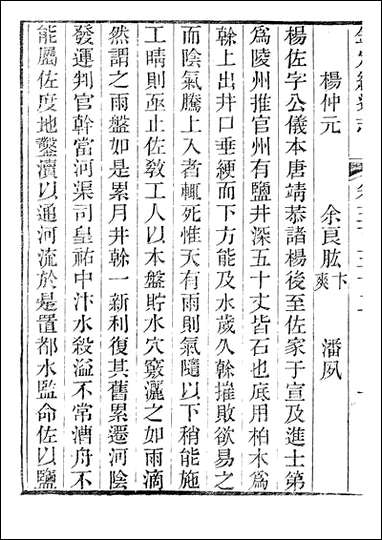 楊仲元　余良肱　卞爽　潘夙
楊佐字公儀本唐靖恭諸楊後至佐家于宣及進士第
爲陵州推官州有鹽井深五十丈皆石也底用柏木爲
榦上出井口垂綆而下方能及水歲久榦摧敗欲易之
而陰氣騰上入者輒死惟天有雨則氣隨以下稍能施
工晴則亟止佐敎工人以木盤貯水穴竅灑之如雨滴
然謂之雨盤如是累月井榦一新利復其舊累遷河陰
發運判官幹當河渠司皇祐中汴水殺溢不常漕舟不
能屬佐度地鑿瀆以通河流於是置都水監命佐以鹽